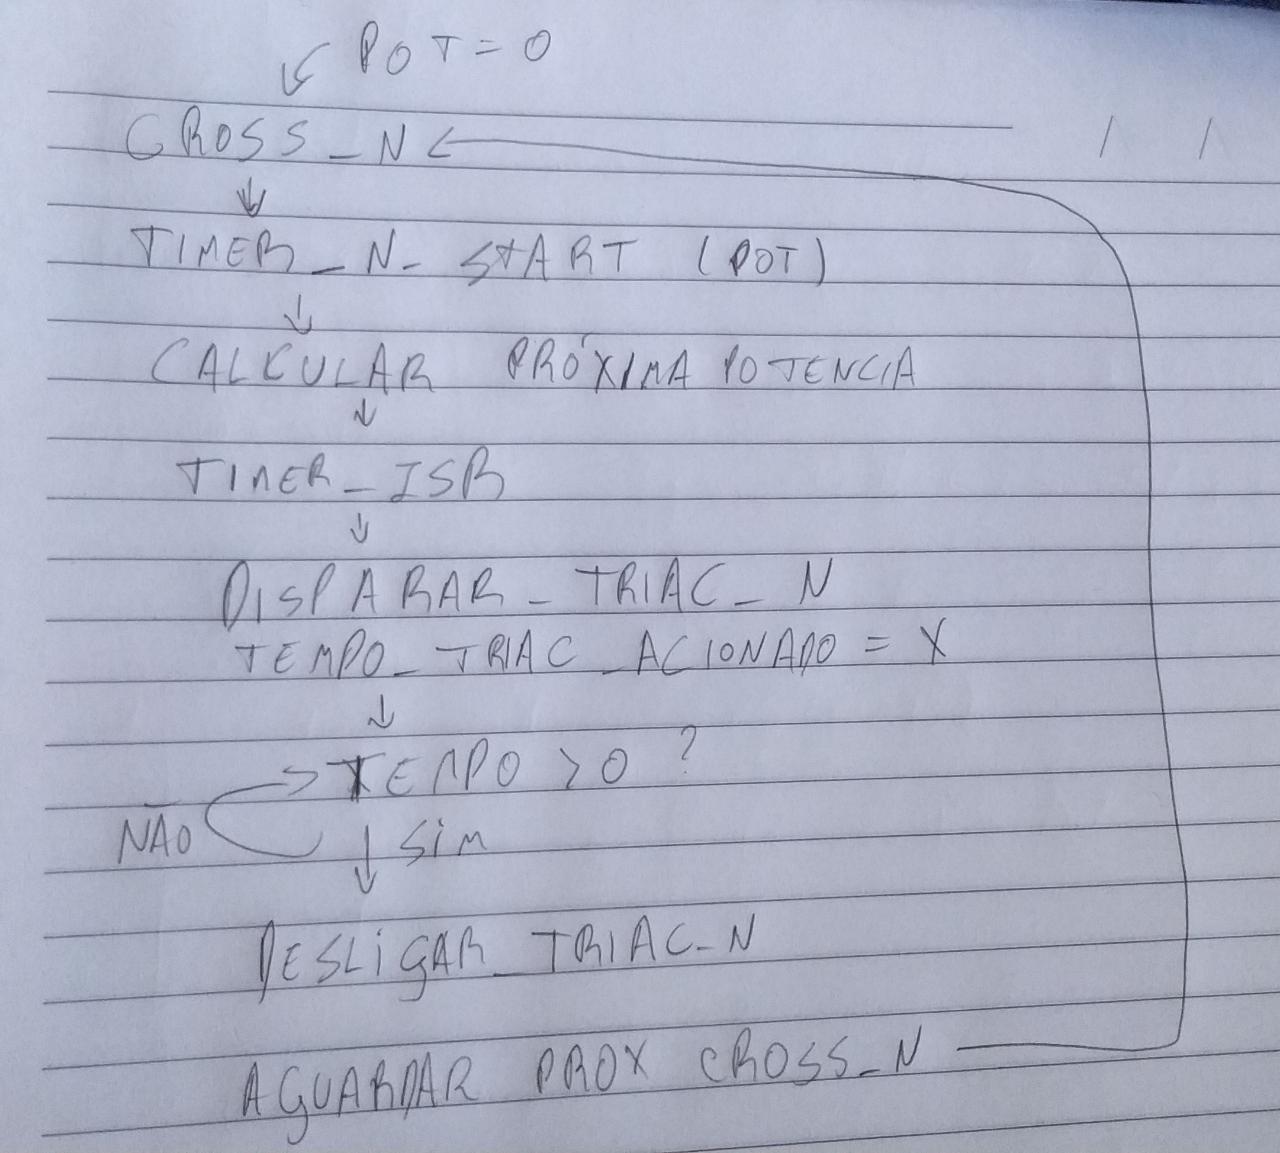 POT = 0
CROSS_N
TIMER_N_START (POT)
CALCULAR PRÓXIMA POTENCIA
TIMER_ISR
DISPARAR_TRIAC_N
TEMPO_TRIAC_ACIONADO = X
TEMPO > 0 ?
NÃO
SiM
DESLiGAR_TRIAC_N
AGUARDAR PROX CROSS_N